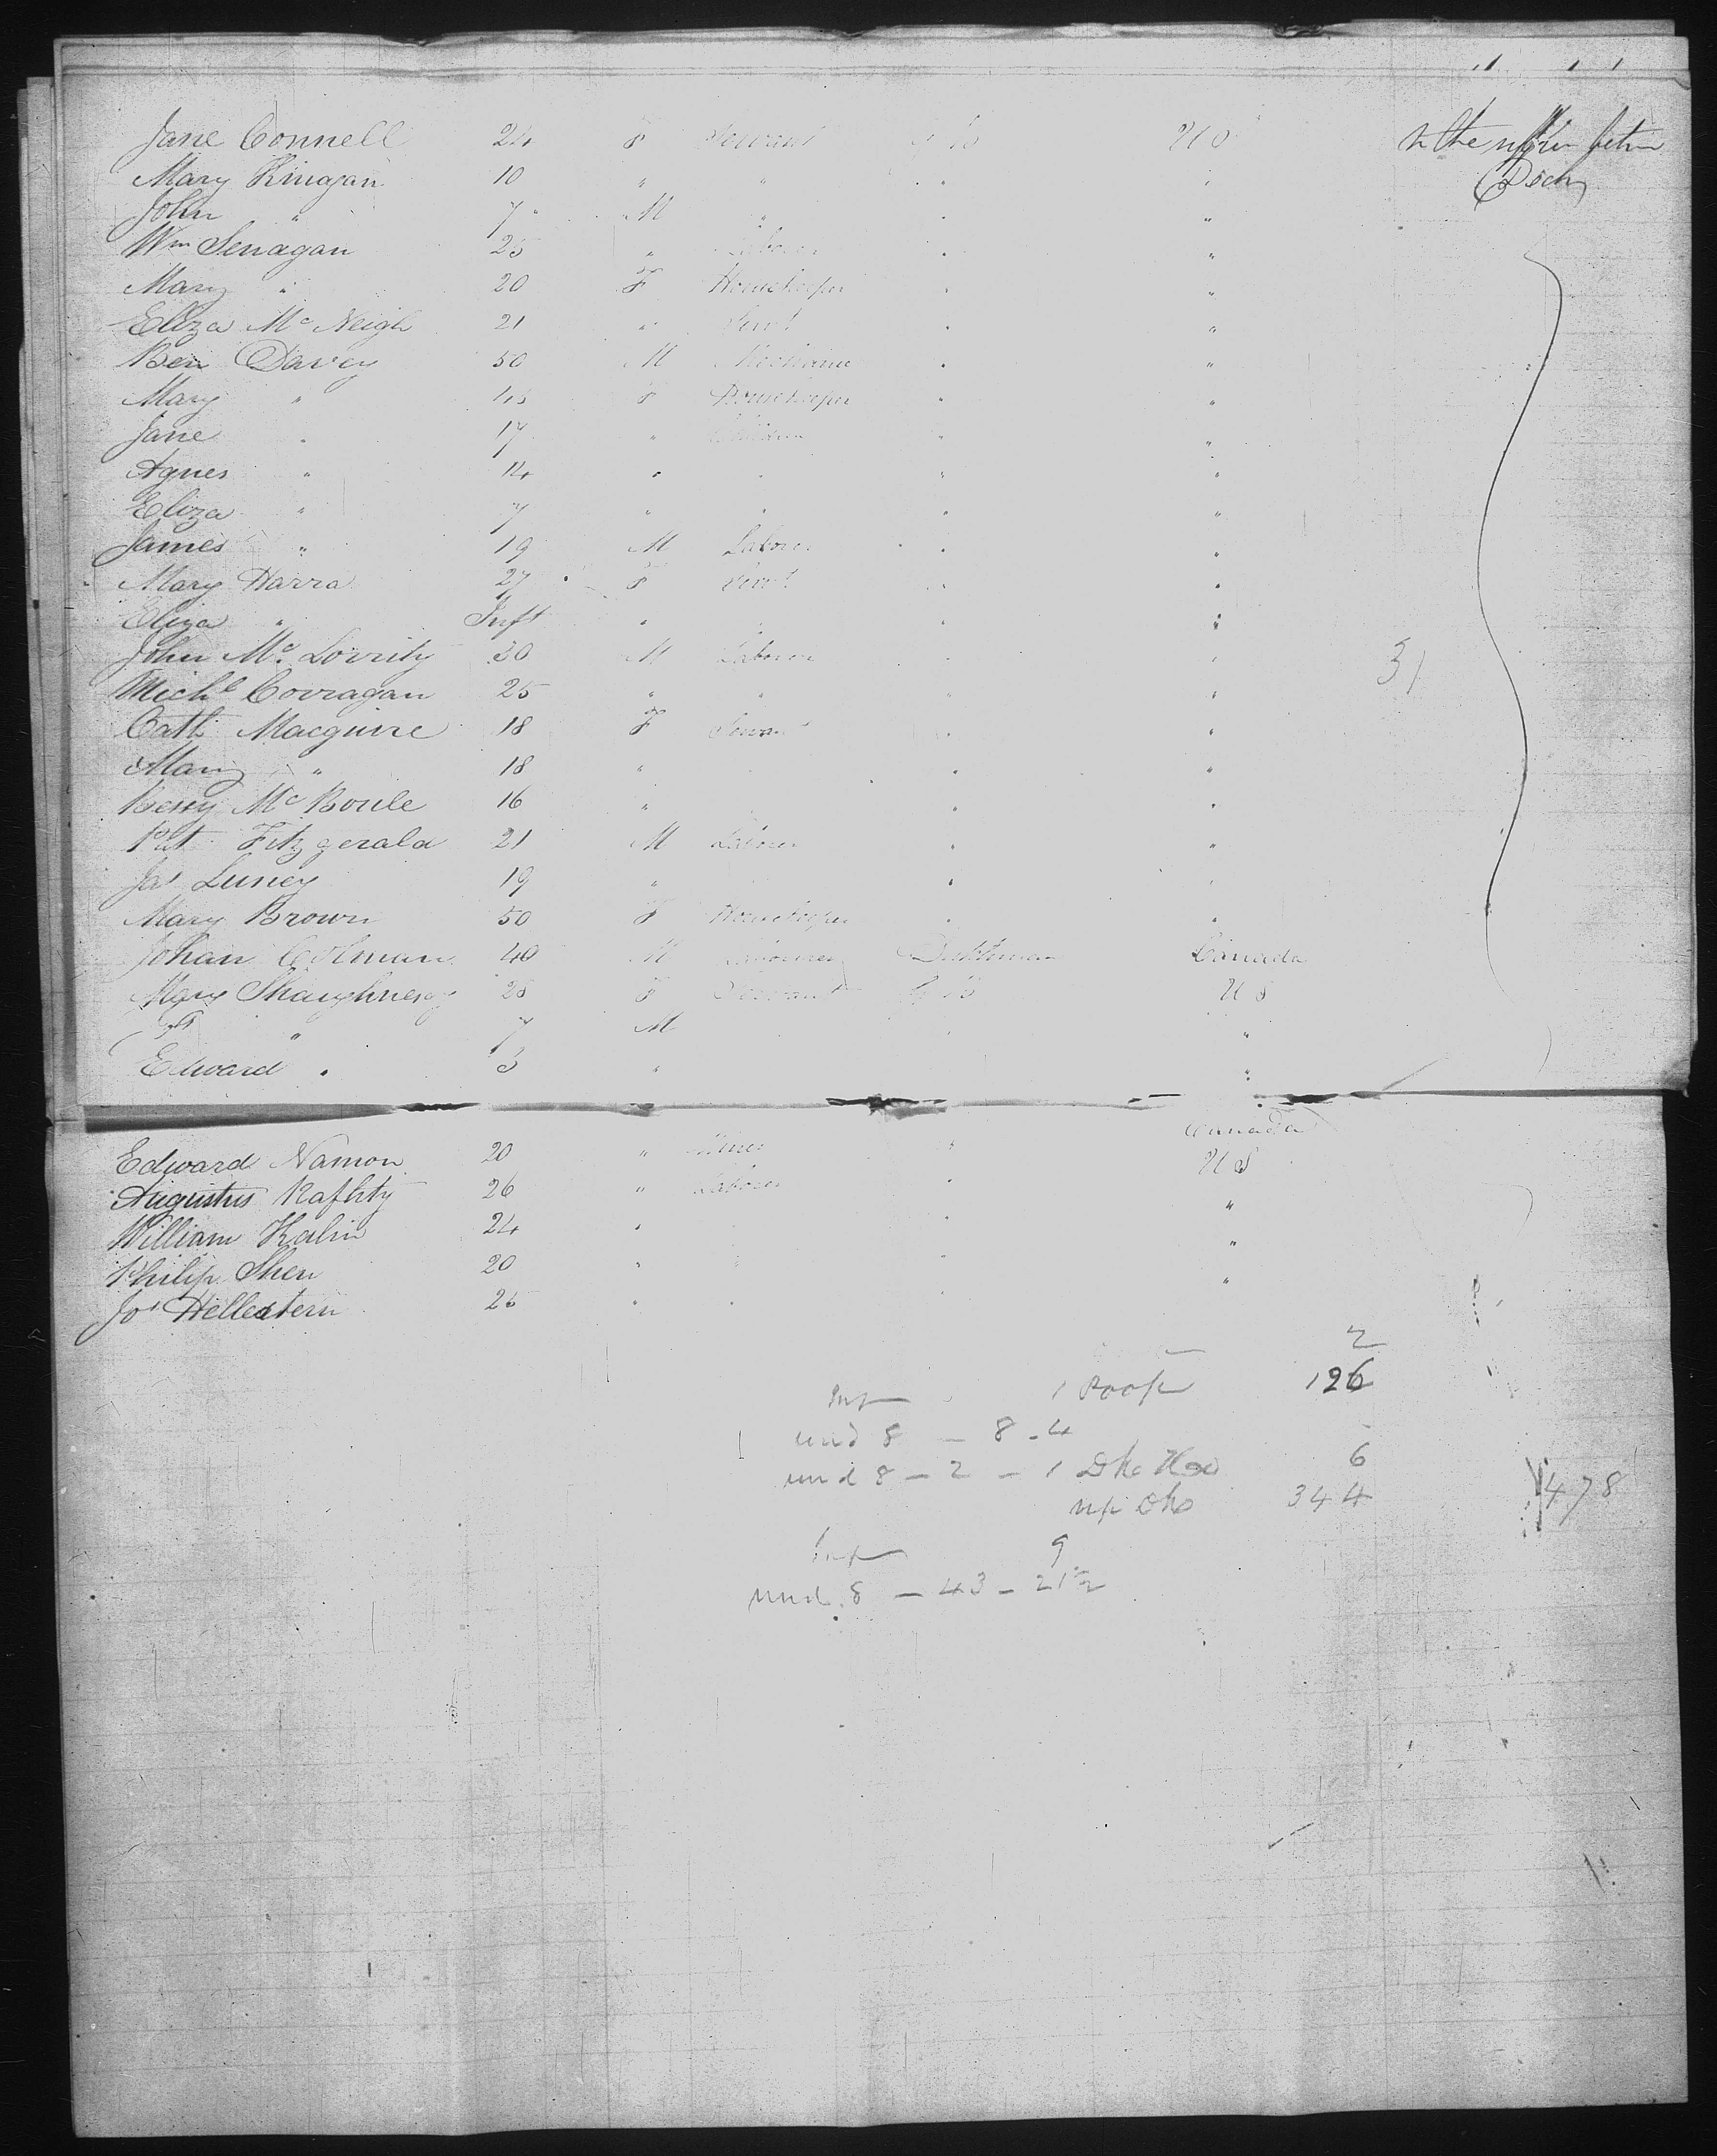 Jane Connell 24 F Servant G B U S In the upper betwn
Mary Kinagan 10 " " " " Decks
John " 7 M " " "
Wm Senagan 25 " Laborer " "
Mary " 20 F Housekeeper " "
Eliza Mc Neigh 21 " Servt " "
Ben Davey 50 M Mechanic " "
Mary " 45 F Housekeeper " "
Jane " 17 " Children " "
Agnes " 14 " " " "
Eliza " 7 " " " "
James " 19 M Laborer " "
Mary Harra 27 F Servt " "
Eliza " Inft " " " "
John Mc Lorrity 30 M Laborer " " 31
Michl Corragan 25 " " " "
Cath Macguire 18 F Servant " "
Mary " 18 " " "
Bessy Mc Boule 16 " " "
Pat Fitzgerald 21 M Laborer " "
Jas Luney 19 " " "
Mary Brown 50 F Housekeeper " "
Johan Colman 40 M Labourer Dutchman Canada
Mary Shaughnesy 28 F Servant G B U S
" 7 M " "
Edward " 3 " "
Canada
Edward Namon 20 " Miner " U S
Augustus Raffity 26 " Laborer " "
William Kalin 24 " " "
Philip Shen 20 " " " "
Jos Hellestern 25 " " "
2
Inf 1 Poop 126
und 8 — 8 - 4
und 8 — 2 — 1 Dk Ho 6
up Dk 344 478
Inf 9
und. 8 — 43 — 21½